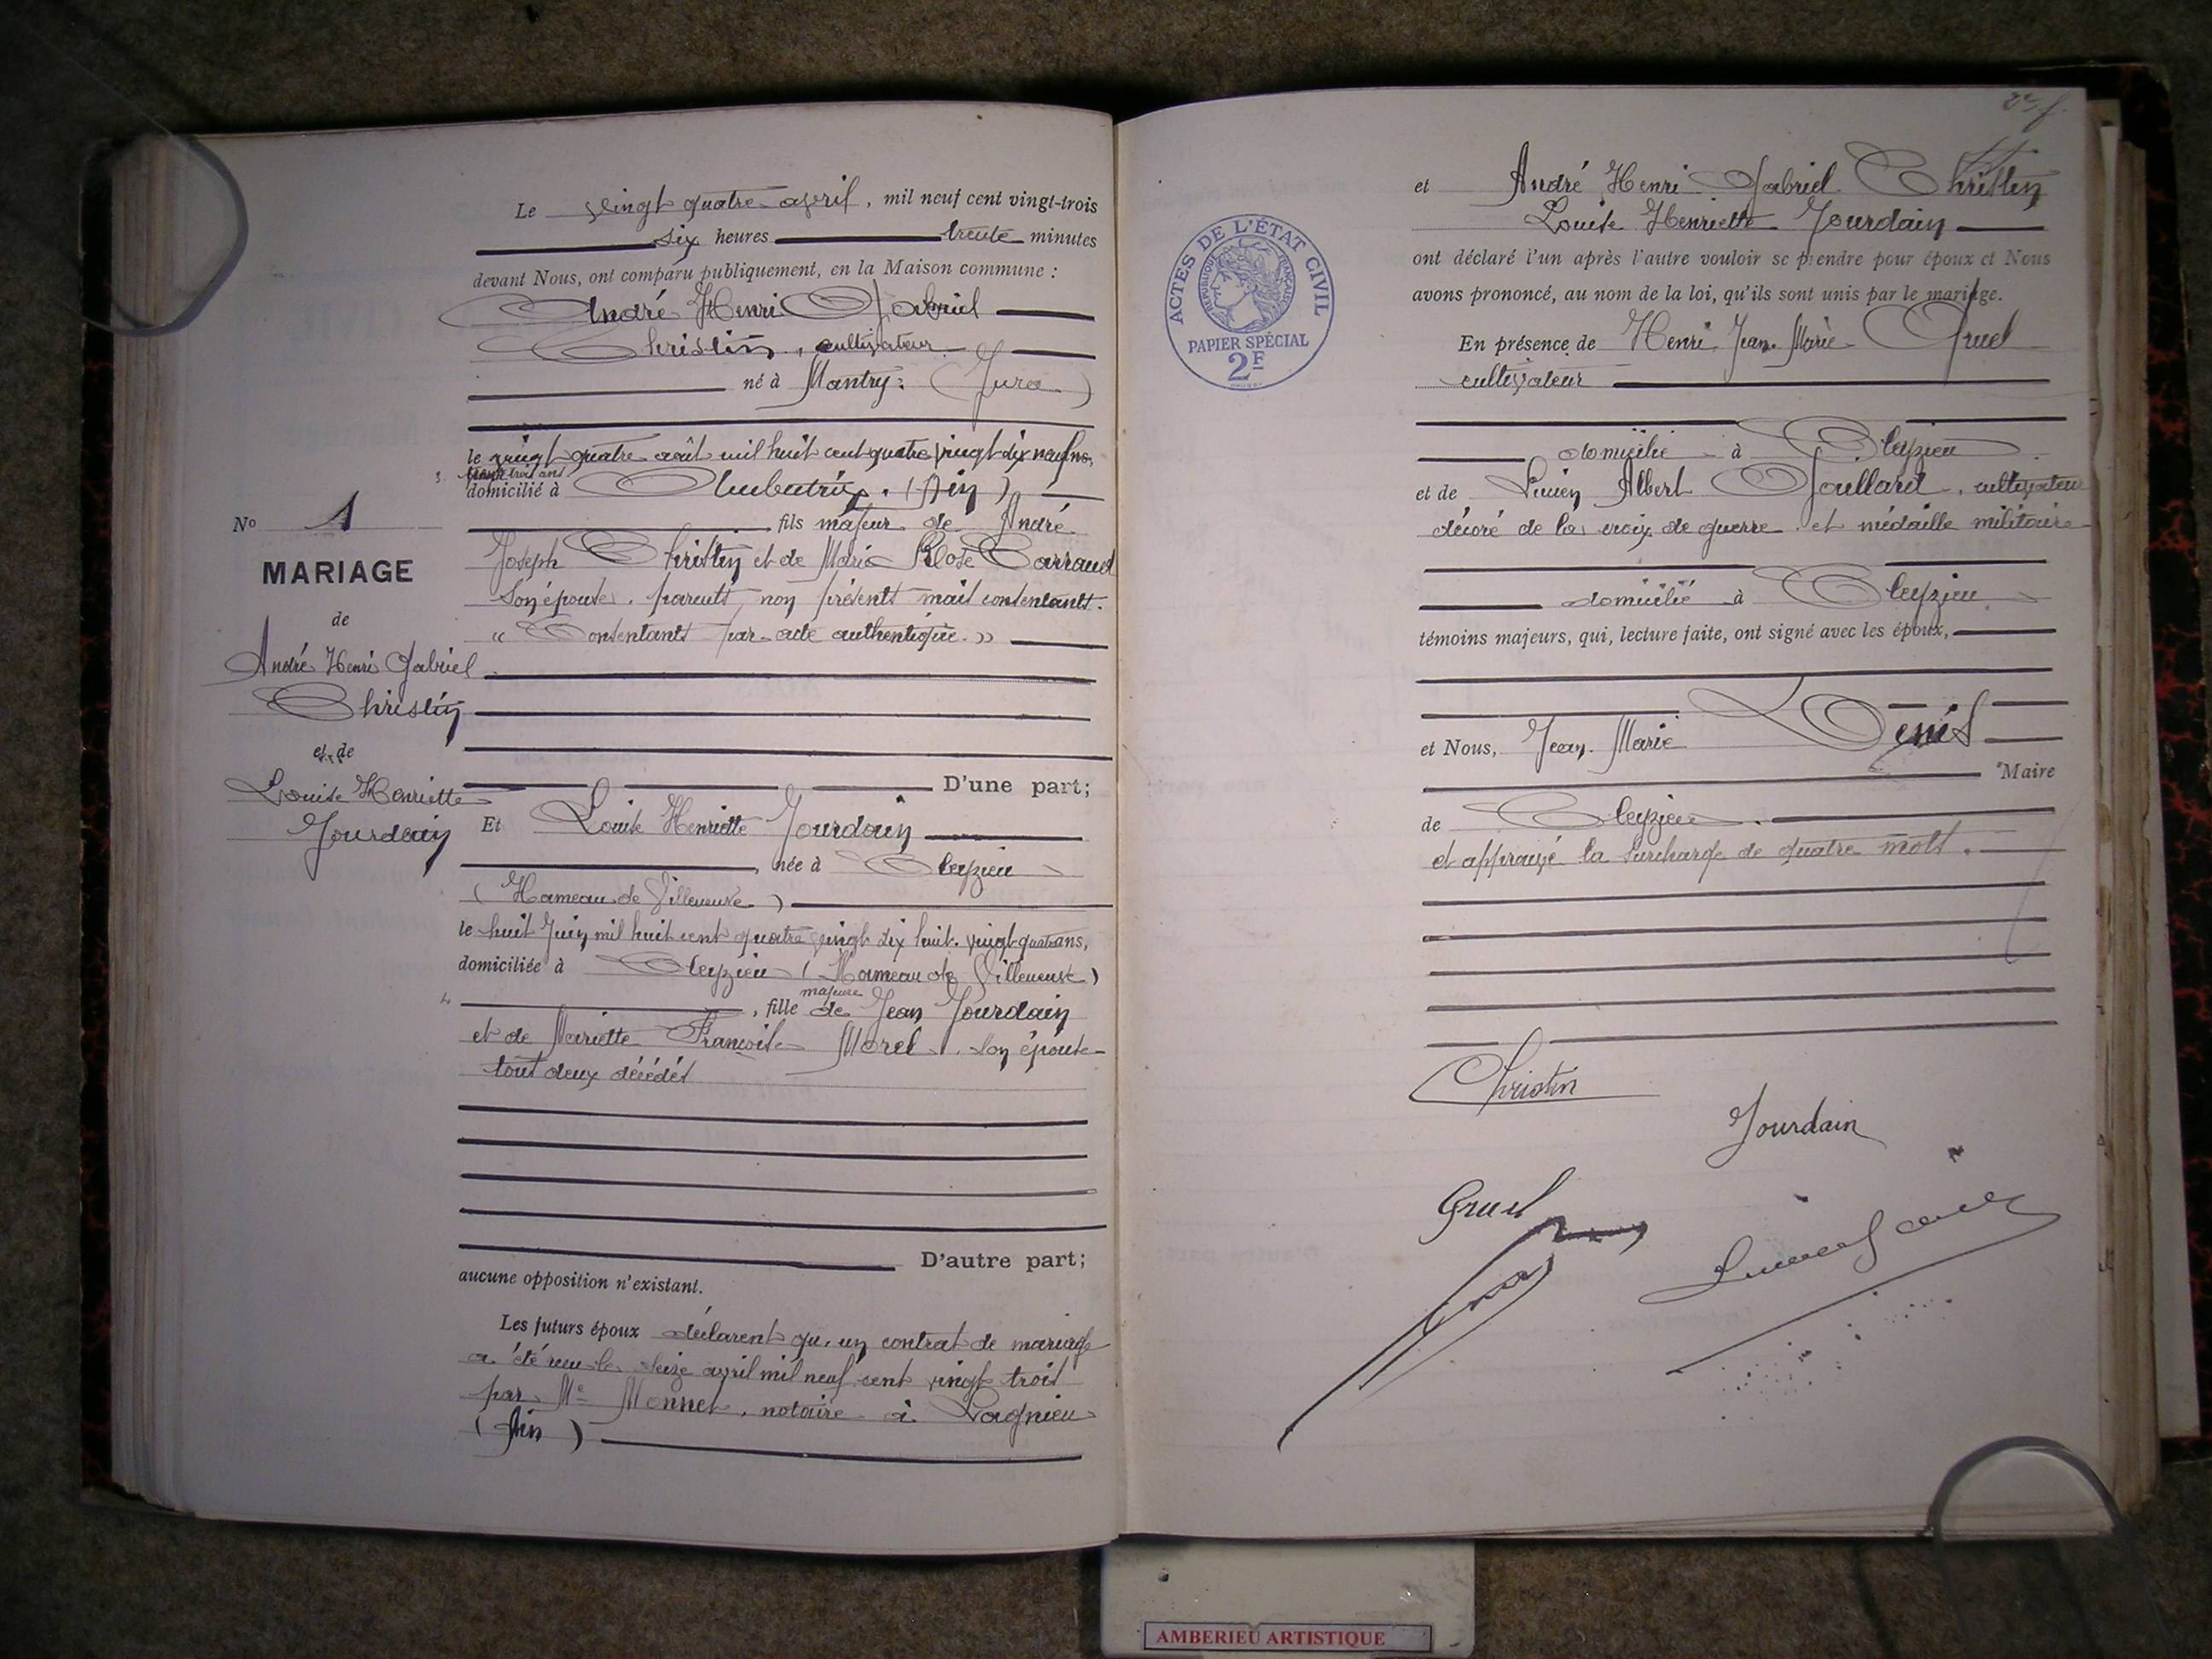 Le vingt quatre avril, mil neuf cent vingt-trois
six heures trente minutes
devant Nous, ont comparu publiquement, en la Maison commune :
André Henri Gabriel
Christin, cultivateur
né à Mantry (Jura)
le vingt quatre août mil huit cent quatre vingt dix neuf
trois ans
domicilié à (Ain)
fils majeur de André
Joseph Christin et de Marie Rose Carraud
son épouse, parents non présents mais consentants.
« Consentants par acte authentique. »
No 1
MARIAGE
de
André Henri Gabriel
Christin
et de
Louise Henriette
Jourdain
D'une part;
Et Louise Henriette Jourdain
, née à Cleyzieu
(Hameau de Villeneuve)
le huit Juin mil huit cent quatre vingt dix huit. vingt quatre ans,
domiciliée à Cleyzieu (Hameau de Villeneuve)
majeure
, fille de Jean Jourdain
et de Mariette Françoise Morel. son épouse
tous deux décédés
D'autre part;
aucune opposition n'existant.
Les futurs époux déclarent qu'un contrat de mariage
a été reçu le seize avril mil neuf cent vingt trois
par Me Monnet, notaire à Lagnieu
(Ain)
et André Henri Gabriel Christin
Louise Henriette Jourdain
ont déclaré l'un après l'autre vouloir se prendre pour époux et Nous
avons prononcé, au nom de la loi, qu'ils sont unis par le mariage.
ACTES DE L'ÉTAT CIVIL
RÉPUBLIQUE FRANÇAISE
PAPIER SPÉCIAL
2F
En présence de Henri Jean-Marie Gruel
cultivateur
domicilié à Cleyzieu
et de Lucien Albert, cultivateur
décoré de la croix de guerre et médaille militaire
domicilié à Cleyzieu
témoins majeurs, qui, lecture faite, ont signé avec les époux,
et Nous, Jean-Marie Denis
Maire
de Cleyzieu.
et approuvé la surcharge de quatre mots.
Christin
Jourdain
Gruel
AMBERIEU ARTISTIQUE